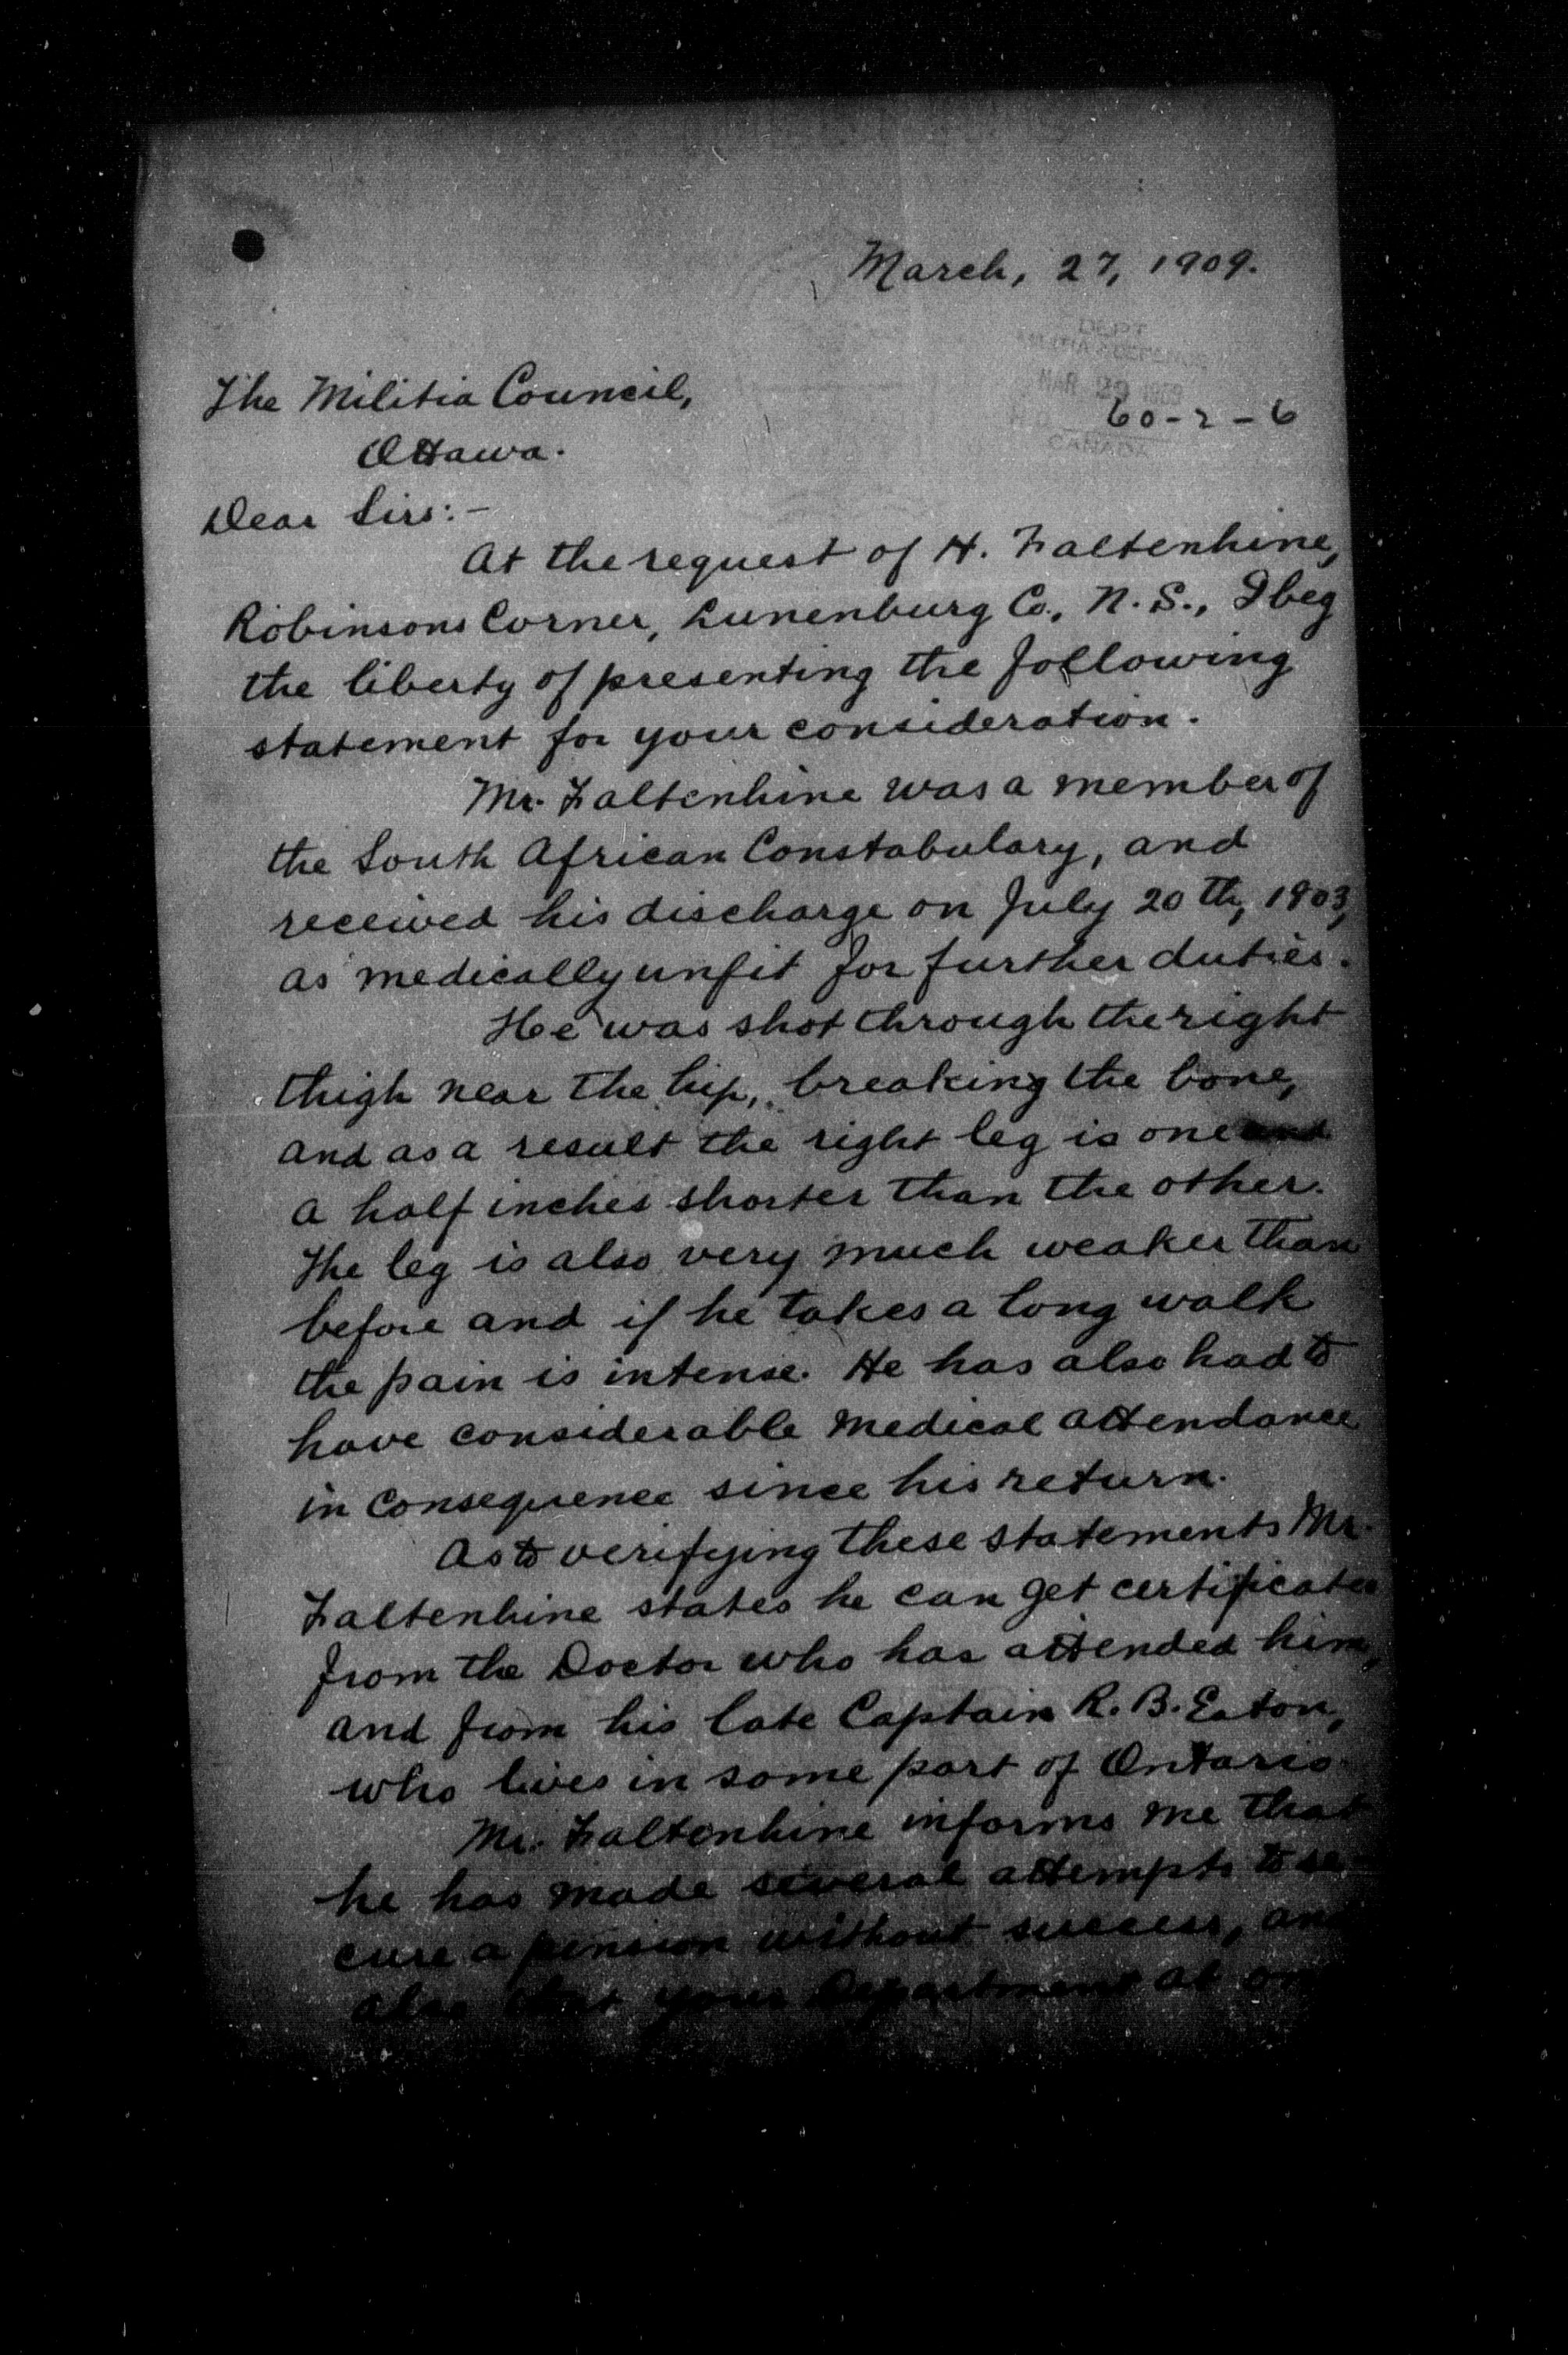 March, 27, 1909.
DEPT
MILITIA & DEFENCE
MAR 29 1909
H.Q. 60-2-6
CANADA
The Militia Council,
Ottawa.
Dear Sirs:-
At the request of H. Faltenhine,
Robinsons Corner, Lunenburg Co., N. S., I beg
the liberty of presenting the following
statement for your consideration.
Mr. Faltenhine was a member of
the South African Constabulary, and
received his discharge on July 20th, 1903,
as medically unfit for further duties.
He was shot through the right
thigh near the hip, breaking the bone,
and as a result the right leg is one and
a half inches shorter than the other.
The leg is also very much weaker than
before and if he takes a long walk
the pain is intense. He has also had to
have considerable medical attendance
in consequence since his return.
As to verifying these statements Mr.
Faltenhine states he can get certificates
from the Doctor who has attended him,
and from his late Captain R. B. Eaton,
who lives in some part of Ontario.
Mr. Faltenhine informs me that
he has made several attempts to se-
cure a pension without success, and
also that your Department at